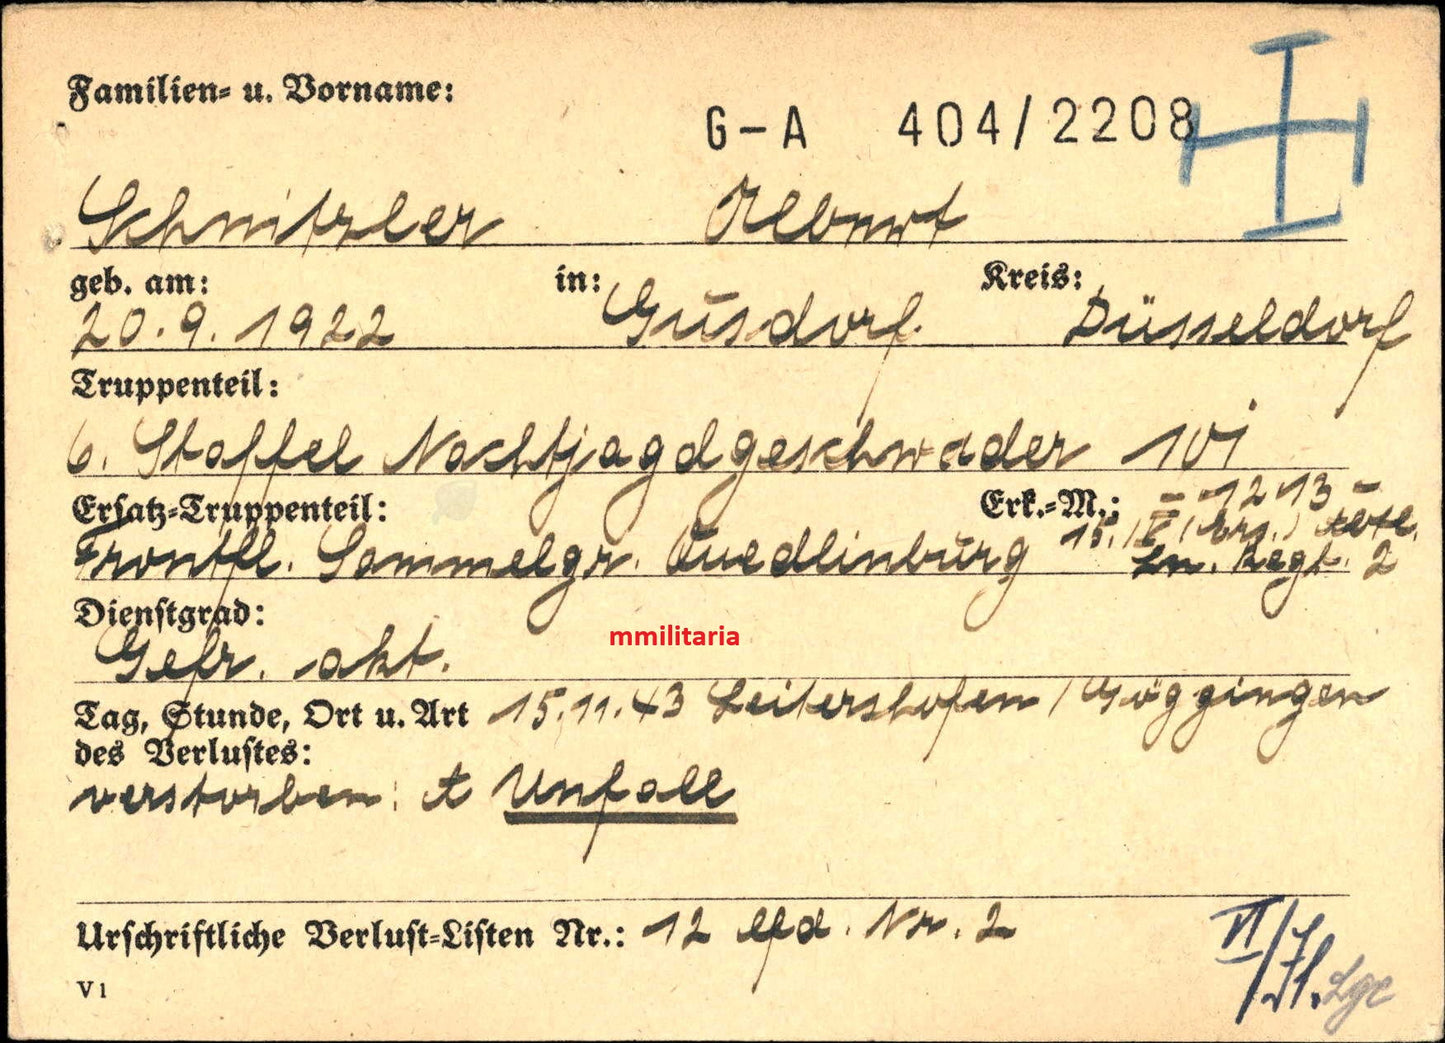 Familien- u. Vorname:
G-A 404/2208
Schnitzler Albert
geb. am: in: Kreis:
20.9.1922 Gusdorf Düsseldorf
Truppenteil:
6. Staffel Nachtjagdgeschwader 101
Ersatz-Truppenteil: Erk.-M.: - 1213 -
Frontfl. Sammelgr. Quedlinburg 15./ Ln. Regt. 2
Dienstgrad:
Gefr. akt.
mmilitaria
Tag, Stunde, Ort u. Art 15.11.43 Leitershofen / Göggingen
des Verlustes:
verstorben: Unfall
Urschriftliche Verlust-Listen Nr.: 12 lfd. Nr. 2
V1
VI/